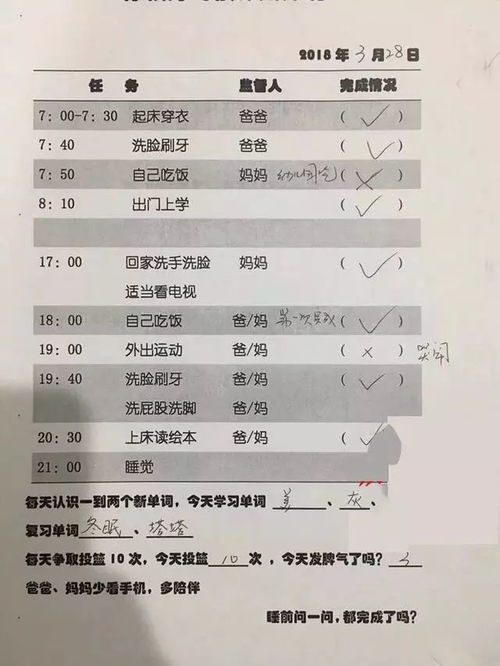 2018 年 3 月 28 日
任 务 监督人 完成情况
7：00-7：30 起床穿衣 爸爸 （ ✓ ）
7：40 洗脸刷牙 爸爸 （ ✓ ）
7：50 自己吃饭 妈妈 幼儿园吃 （ × ）
8：10 出门上学 （ ✓ ）
17：00 回家洗手洗脸 妈妈 （ ✓ ）
适当看电视
18：00 自己吃饭 爸/妈 第一次 （ ✓ ）
19：00 外出运动 爸/妈 （ × ） 哭闹
19：40 洗脸刷牙 爸/妈 （ ✓ ）
洗屁股洗脚 爸/妈
20：30 上床读绘本 爸/妈 （ ✓
21：00 睡觉
每天认识一到两个新单词，今天学习单词 姜 、 灰 、
复习单词 冬眠 、 塔塔
每天争取投篮 10 次，今天投篮 10 次 ，今天发脾气了吗？ 3
爸爸、妈妈少看手机，多陪伴
睡前问一问，都完成了吗？